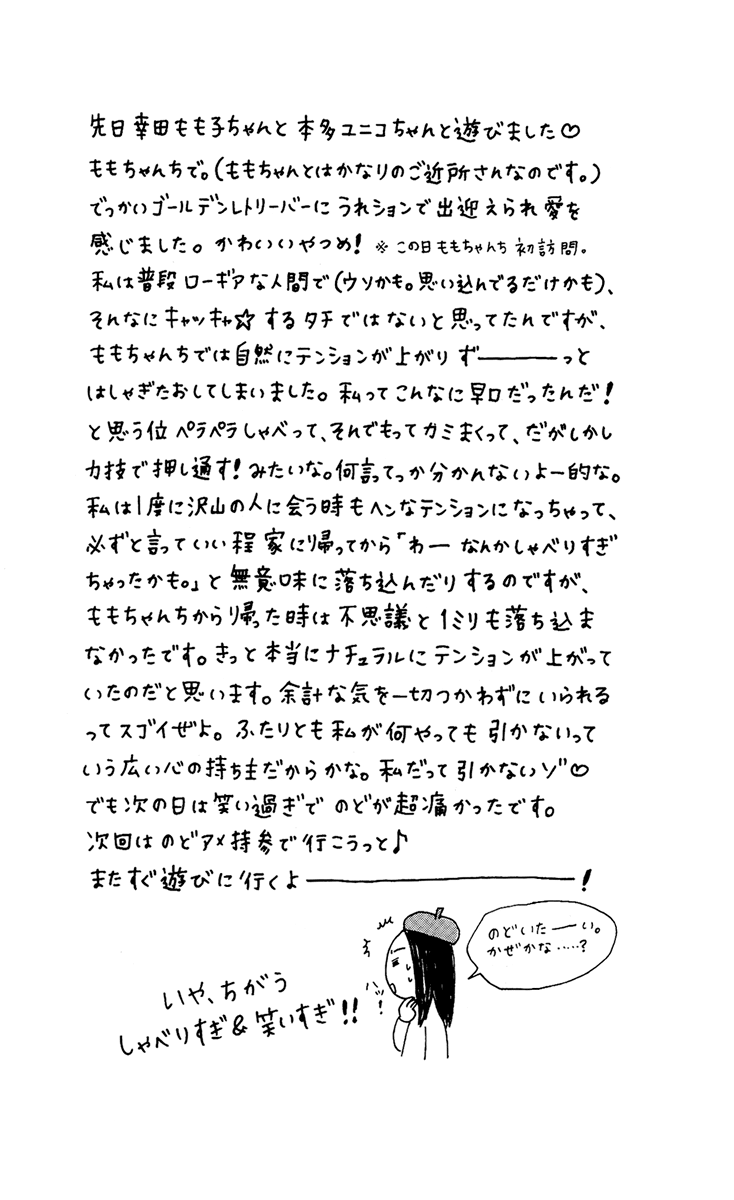 先日幸田もも子ちゃんと本多ユニコちゃんと遊びました♡
ももちゃんちで。(ももちゃんとはかなりのご近所さんなのです。)
でっかいゴールデンレトリーバーにうれションで出迎えられ愛を
感じました。かわいいやつめ! ※この日ももちゃんち初訪問。
私は普段ローギアな人間で(ウソかも。思い込んでるだけかも)、
そんなにキャッキャ☆するタチではないと思ってたんですが、
ももちゃんちでは自然にテンションが上がりず―――っと
はしゃぎたおしてしまいました。私ってこんなに早口だったんだ!
と思う位ペラペラしゃべって、それでもってカミまくって、だがしかし
力技で押し通す!みたいな。何言ってっか分かんないよー的な。
私は1度に沢山の人に会う時もヘンなテンションになっちゃって、
必ずと言っていい程家に帰ってから「わー なんかしゃべりすぎ
ちゃったかも。」と無意味に落ち込んだりするのですが、
ももちゃんちから帰った時は不思議と1ミリも落ち込ま
なかったです。きっと本当にナチュラルにテンションが上がって
いたのだと思います。余計な気を一切つかわずにいられる
ってスゴイぜよ。ふたりとも私が何やっても引かないって
いう広い心の持ち主だからかな。私だって引かないゾ♡
でも次の日は笑い過ぎでのどが超痛かったです。
次回はのどアメ持参で行こうっと♪
またすぐ遊びに行くよ――――――――!
のどいたーい。
かぜかな……?
ハッ!
いや、ちがう
しゃべりすぎ&笑いすぎ!!